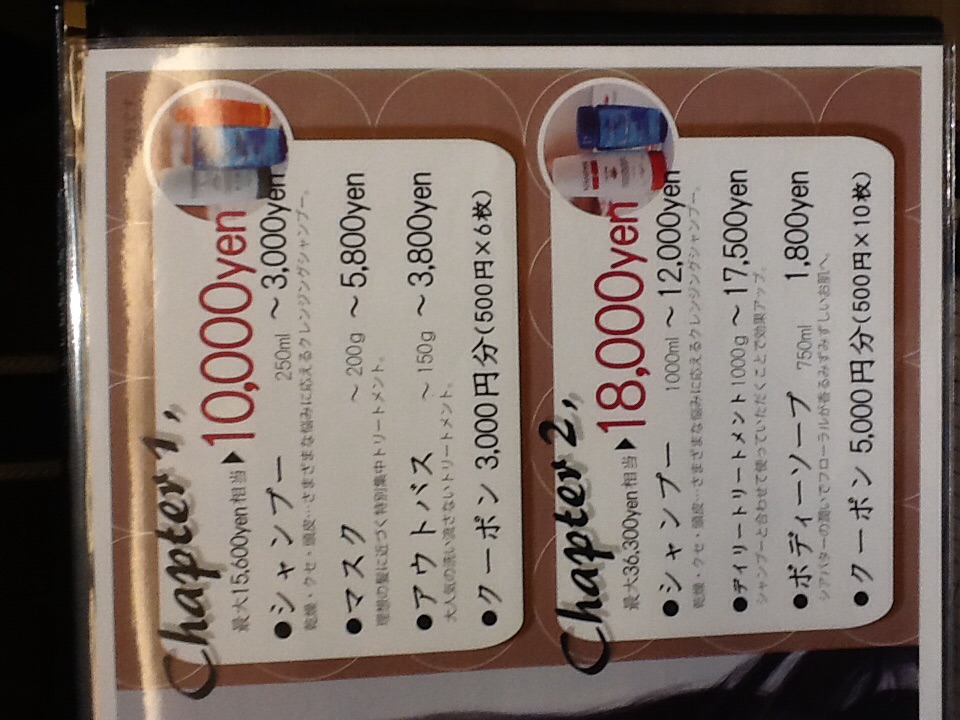 Chapter 1,
最大15,600yen相当▶10,000yen
●シャンプー 250ml ～3,000yen
乾燥・クセ・頭皮…さまざまな悩みに応えるクレンジングシャンプー。
●マスク ～200g ～5,800yen
理想の髪に近づく特別集中トリートメント。
●アウトバス ～150g ～3,800yen
大人気の洗い流さないトリートメント。
●クーポン 3,000円分(500円×6枚)
Chapter 2,
最大36,300yen相当▶18,000yen
●シャンプー 1000ml ～12,000yen
乾燥・クセ・頭皮…さまざまな悩みに応えるクレンジングシャンプー。
●デイリートリートメント 1000g ～17,500yen
シャンプーと合わせて使っていただくことで効果アップ。
●ボディーソープ 750ml 1,800yen
シアバターの潤いでフローラルが香るみずみずしいお肌へ。
●クーポン 5,000円分(500円×10枚)